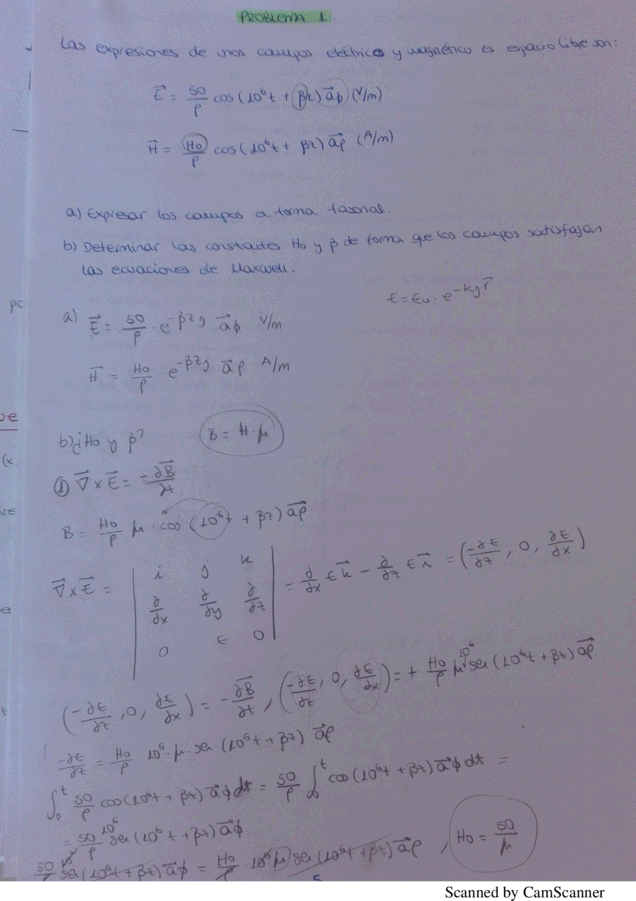 PROBLEMA 1.
Las expresiones de unos campos eléctrico y magnético en espacio libre son:
E⃗ = 50/ρ cos(10⁶t + βz) a⃗ϕ (V/m)
H⃗ = H0/ρ cos(10⁶t + βz) a⃗ρ (A/m)
a) Expresar los campos en forma fasorial.
b) Determinar las constantes H0 y β de forma que los campos satisfagan
las ecuaciones de Maxwell.
E = E0 · e^-kjr⃗
a) E⃗ = 50/ρ · e^-βzj a⃗ϕ V/m
H⃗ = H0/ρ e^-βzj a⃗ρ A/m
b) ¿H0 y β? B = H · μ
① ∇⃗ x E⃗ = -∂B⃗/∂t
B = H0/ρ μ cos(10⁶t + βz) a⃗ρ
∇⃗ x E⃗ = | i j k ; ∂/∂x ∂/∂y ∂/∂z ; 0 E 0 | = ∂/∂x E k⃗ - ∂/∂z E i⃗ = (-∂E/∂z, 0, ∂E/∂x)
(-∂E/∂z, 0, ∂E/∂x) = -∂B⃗/∂t, (-∂E/∂z, 0, ∂E/∂x) = + H0/ρ μ 10⁶ sen(10⁶t + βz) a⃗ρ
-∂E/∂z = H0/ρ 10⁶ · μ · sen(10⁶t + βz) a⃗ρ
∫₀ᵗ 50/ρ cos(10⁶t + βz) a⃗ϕ dt = 50/ρ ∫₀ᵗ cos(10⁶t + βz) a⃗ϕ dt =
= 50/ρ 10⁶ sen(10⁶t + βz) a⃗ϕ
50/ρ sen(10⁶t + βz) a⃗ϕ = H0/ρ · 10⁶ μ sen(10⁶t + βz) a⃗ρ, H0 = 50/μ
Scanned by CamScanner